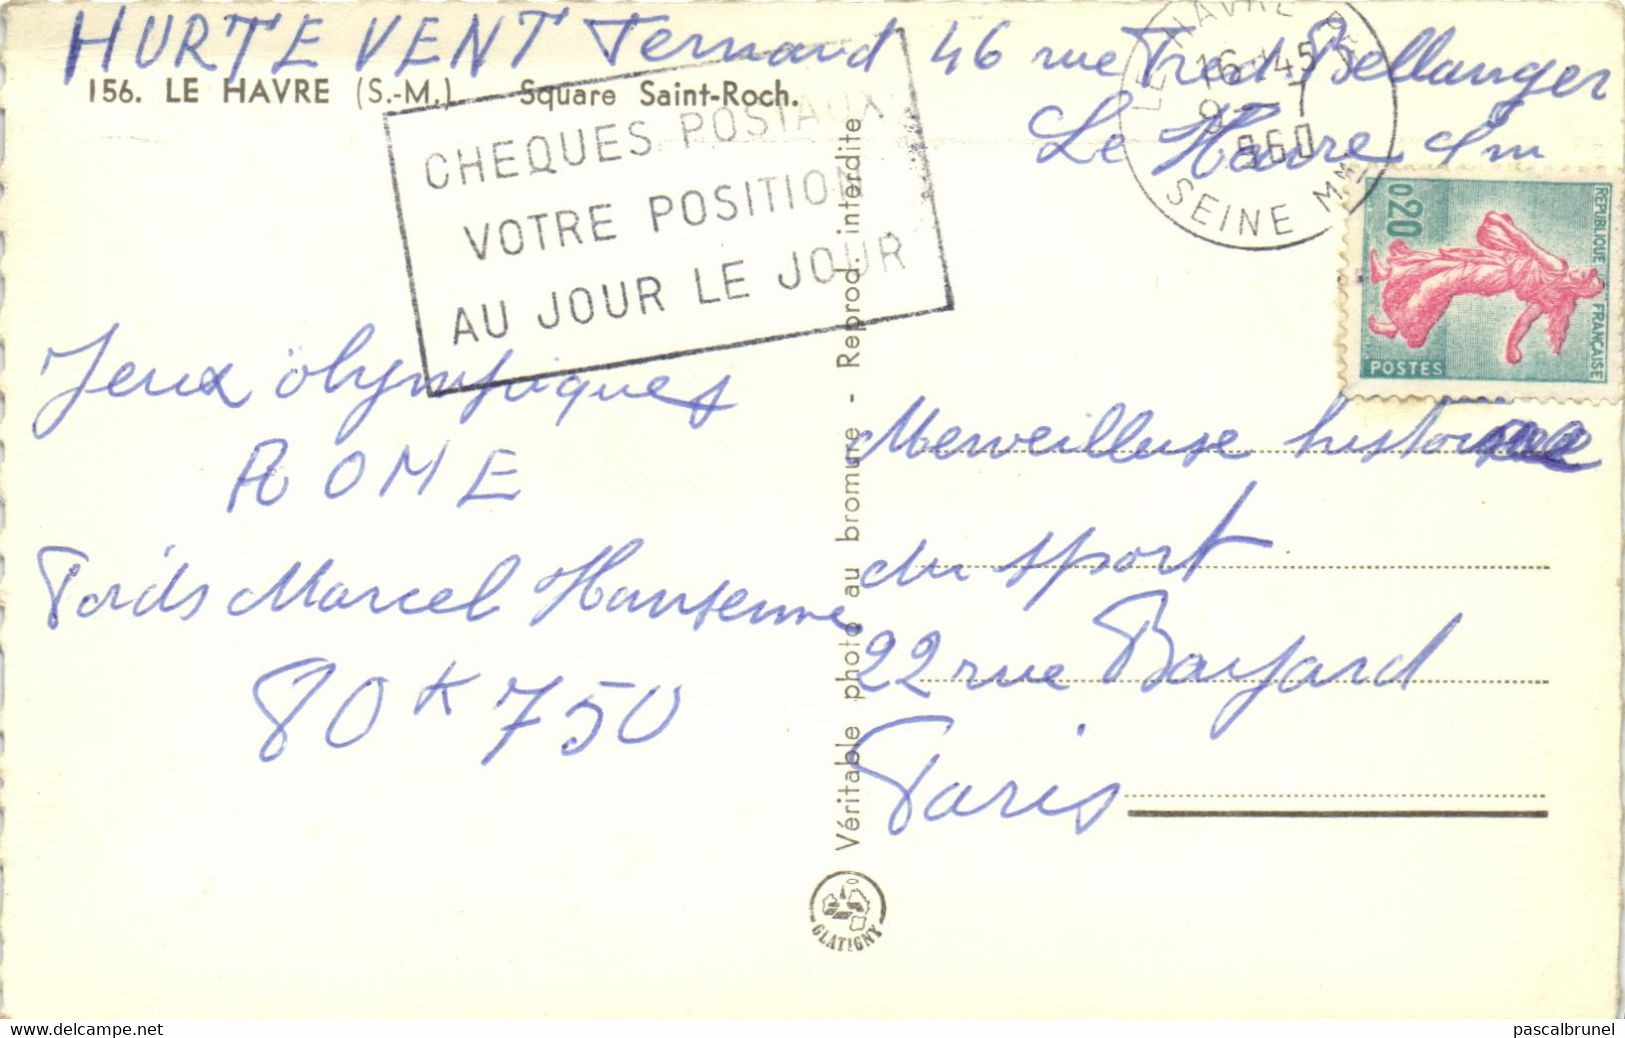 HURTEVENT Fernand 46 rue Fred Bellanger
156. LE HAVRE (S.-M.) Square Saint-Roch.
Le Havre S m
LE HAVRE
16 45
9
960
SEINE Mme
CHEQUES POSTAUX
VOTRE POSITION
AU JOUR LE JOUR
REPUBLIQUE FRANÇAISE
0,20
POSTES
Jeux olympiques
ROME
Poids Marcel Hansenne
80 k 750
Véritable photo au bromure - Reprod. interdite
Merveilleuse histoire
du sport
22 rue Bayard
Paris
GLATIGNY
www.delcampe.net
pascalbrunel